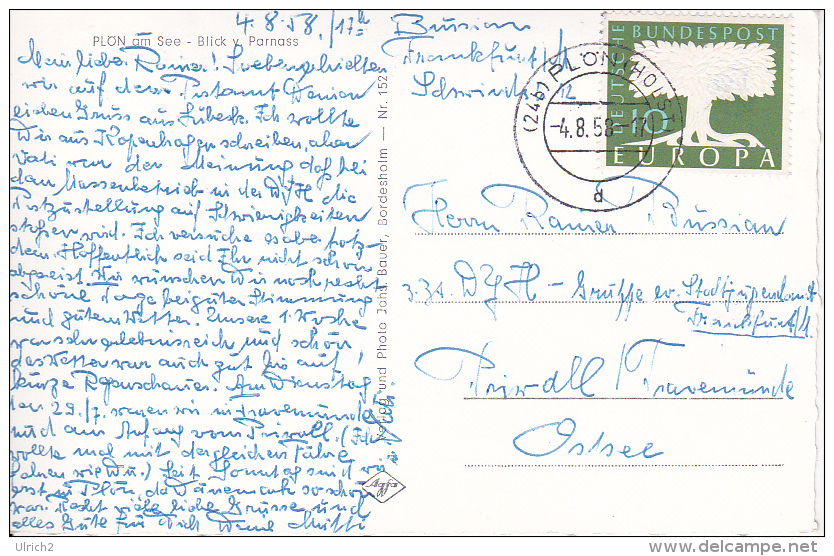 4.8.58, 17h
PLÖN am See - Blick v. Parnass
Mein lieber Rainer! Soeben erhielten
wir auf dem Postamt Deinen
lieben Gruss aus Lübeck. Ich wollte
Dir aus Kopenhagen schreiben, aber
Vati war der Meinung daß bei
dem Massenbetrieb in der DJH die
Postzustellung auf Schwierigkeiten
stoßen wird. Ich versuche es aber trotz-
dem. Hoffentlich seid Ihr nicht schon
abgereist. Wir wünschen Dir noch recht
schöne Tage bei guter Stimmung
und gutem Wetter. Unsere 1. Woche
war sehr erlebnisreich und schön
das Wetter war auch gut bis auf
kurze Regenschauer. Am Dienstag
den 29./7. waren wir in Travemünde
und am Anfang vom Priwall. (Ich
wollte mal mit dergleichen Fähre
fahren wie Du.) Seit Sonntag sind wir
erst in Plön, da Dänemark so schön
war. Recht viele liebe Grüsse und
alles Gute für Dich Deine Mutti
Verlag und Photo Johs. Bauer, Bordesholm — Nr. 152
Agfa
Bussian
Frankfurt/M
Schwindstr. 12
DEUTSCHE BUNDESPOST
10
EUROPA
(24b) PLÖN (HOLST)
-4.8.58-17
d
Herrn Rainer Bussian
z.Zt. DJH - Gruppe ev. Stadtjugendamt
Frankfurt/M.
Priwall / Travemünde
Ostsee
Ulrich2
http://www.delcampe.net